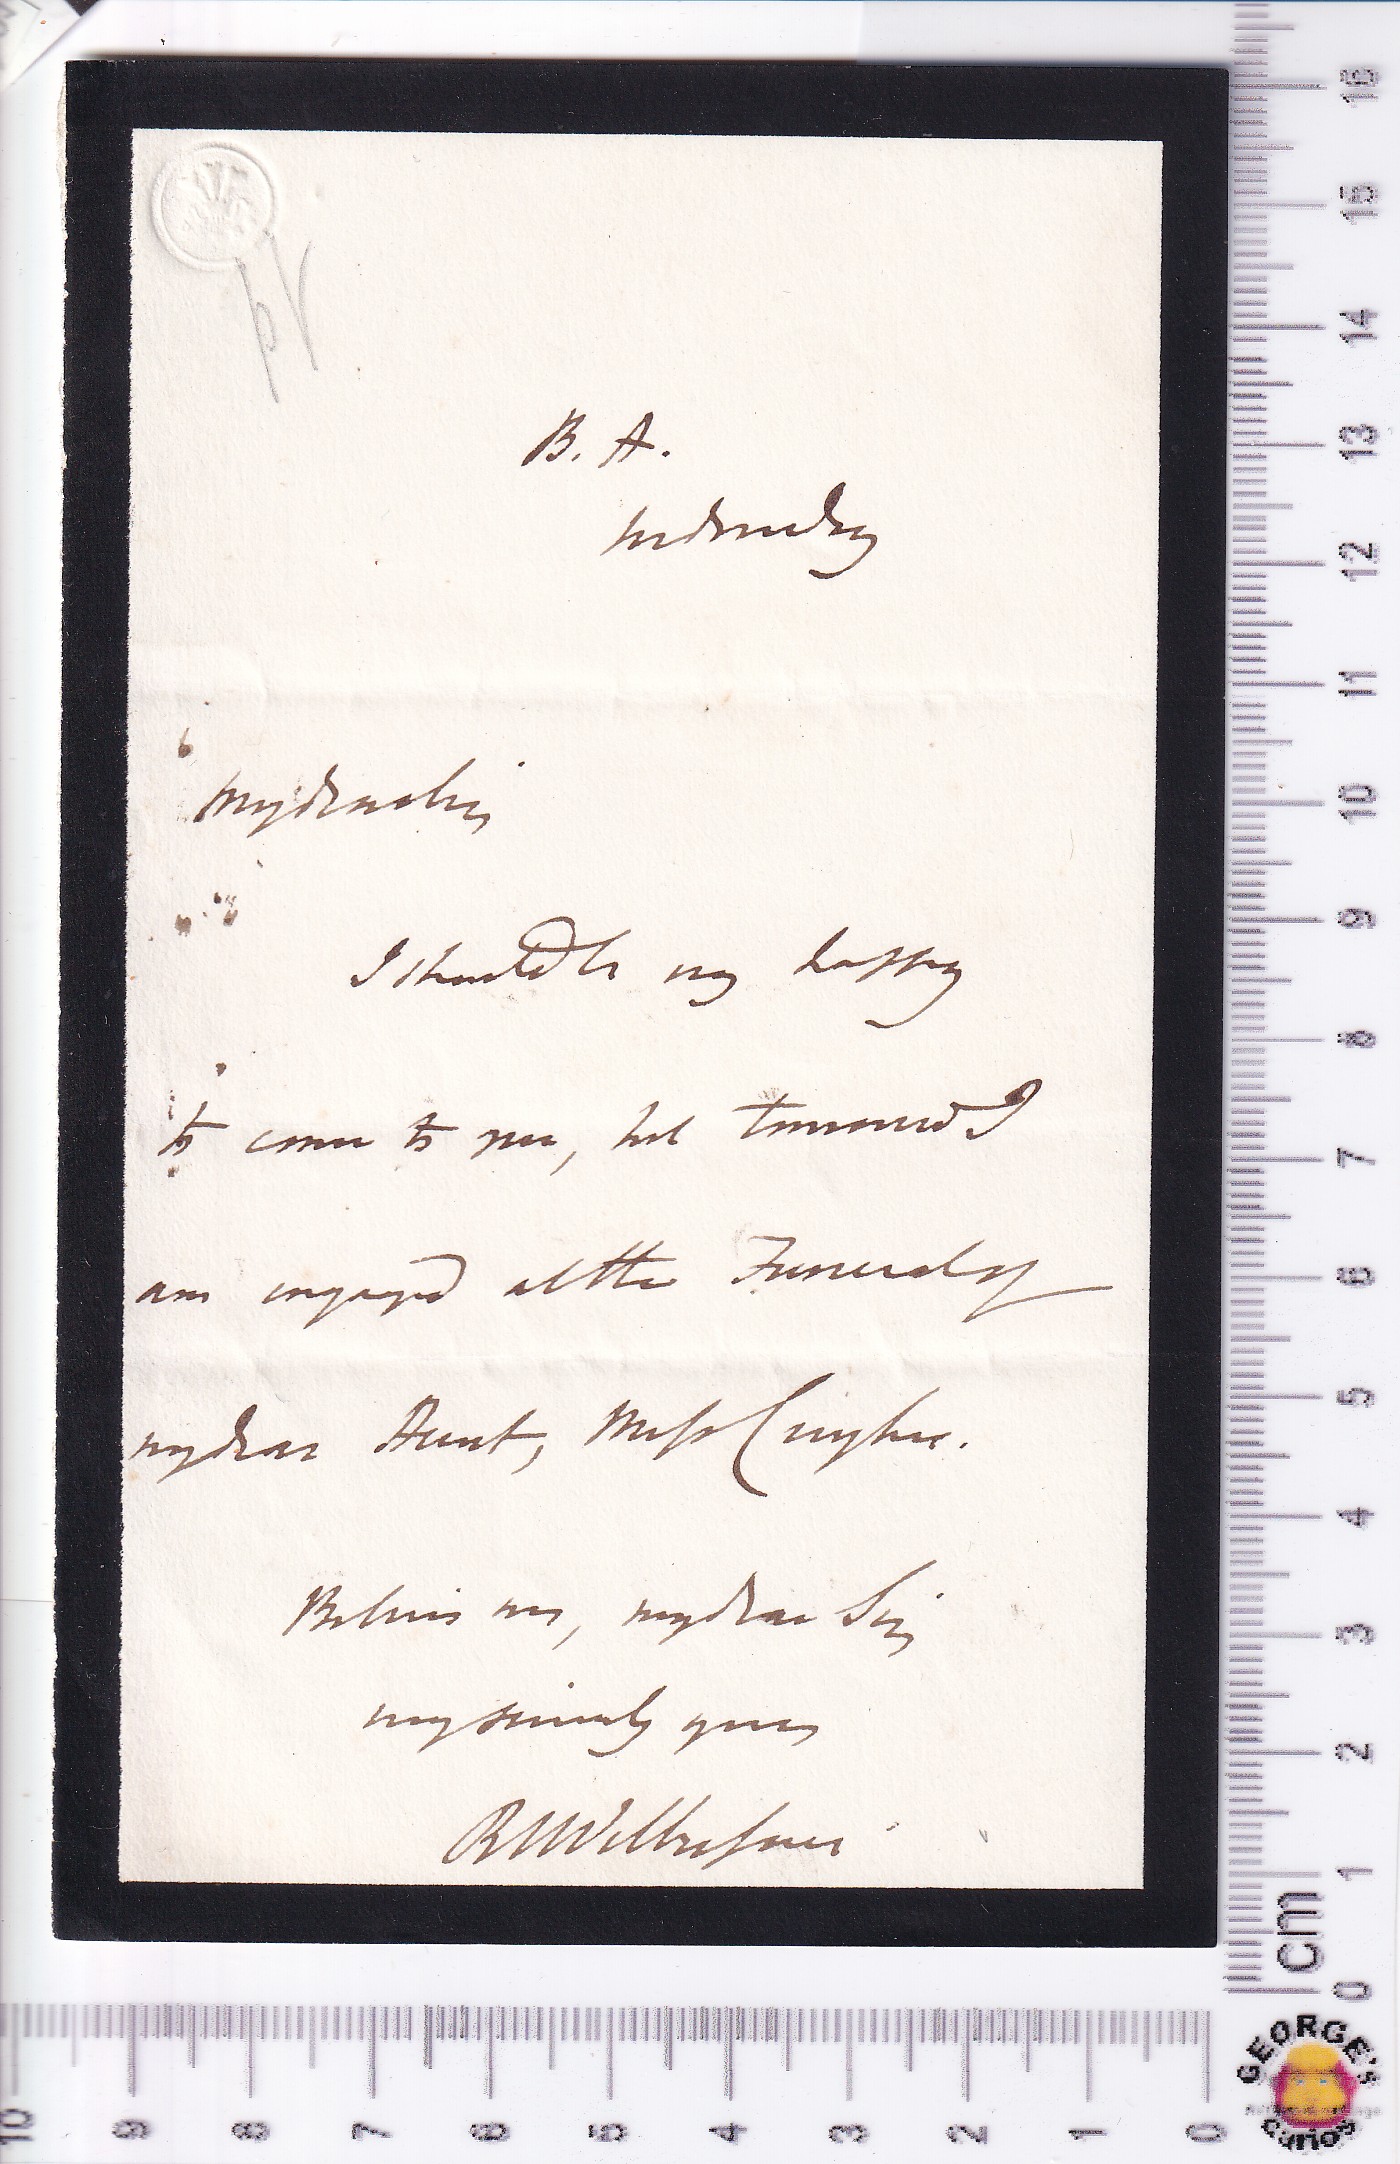 B. A.
Wednesday
My dear Sir
I should be very happy
to come to you, but tomorrow I
am engaged at the Funeral of
my dear Aunt, Miss
Believe me, my dear Sir,
very sincerely yours
R Wilberforce
16
15
14
13
12
11
10
9
8
7
6
5
4
3
2
1
0
cm
10
9
8
7
6
5
4
3
2
1
0
GEORGE'S